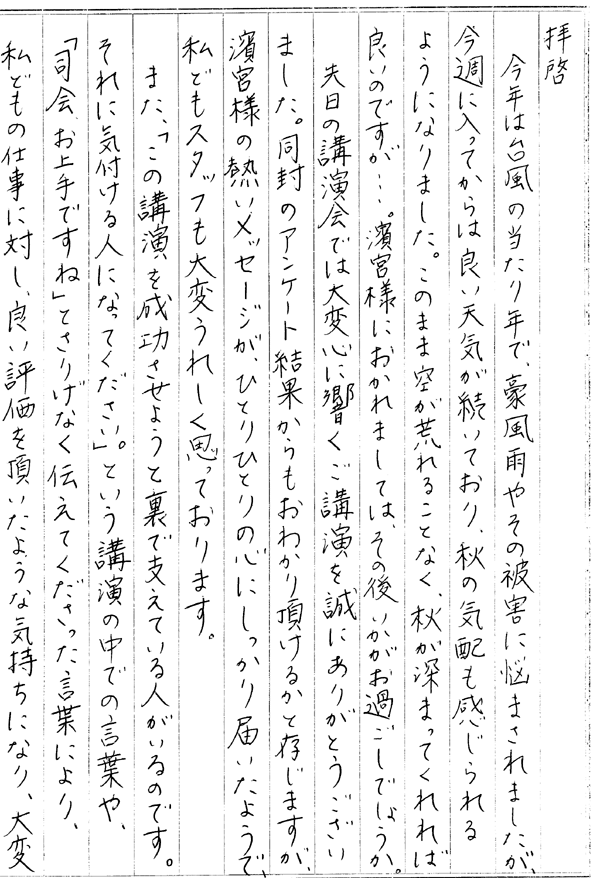 拝啓
今年は台風の当たり年で、豪風雨やその被害に悩まされましたが、
今週に入ってからは良い天気が続いており、秋の気配も感じられる
ようになりました。このまま空が荒れることなく、秋が深まってくれれば
良いのですが…。濱宮様におかれましては、その後いかがお過ごしでしょうか。
先日の講演会では大変心に響くご講演を誠にありがとうござい
ました。同封のアンケート結果からもおわかり頂けるかと存じますが、
濱宮様の熱いメッセージが、ひとりひとりの心にしっかり届いたようで、
私どもスタッフも大変うれしく思っております。
また、「この講演を成功させようと裏で支えている人がいるのです。
それに気付ける人になってください」。という講演の中での言葉や、
「司会、お上手ですね」とさりげなく伝えてくださった言葉により、
私どもの仕事に対し、良い評価を頂いたような気持ちになり、大変